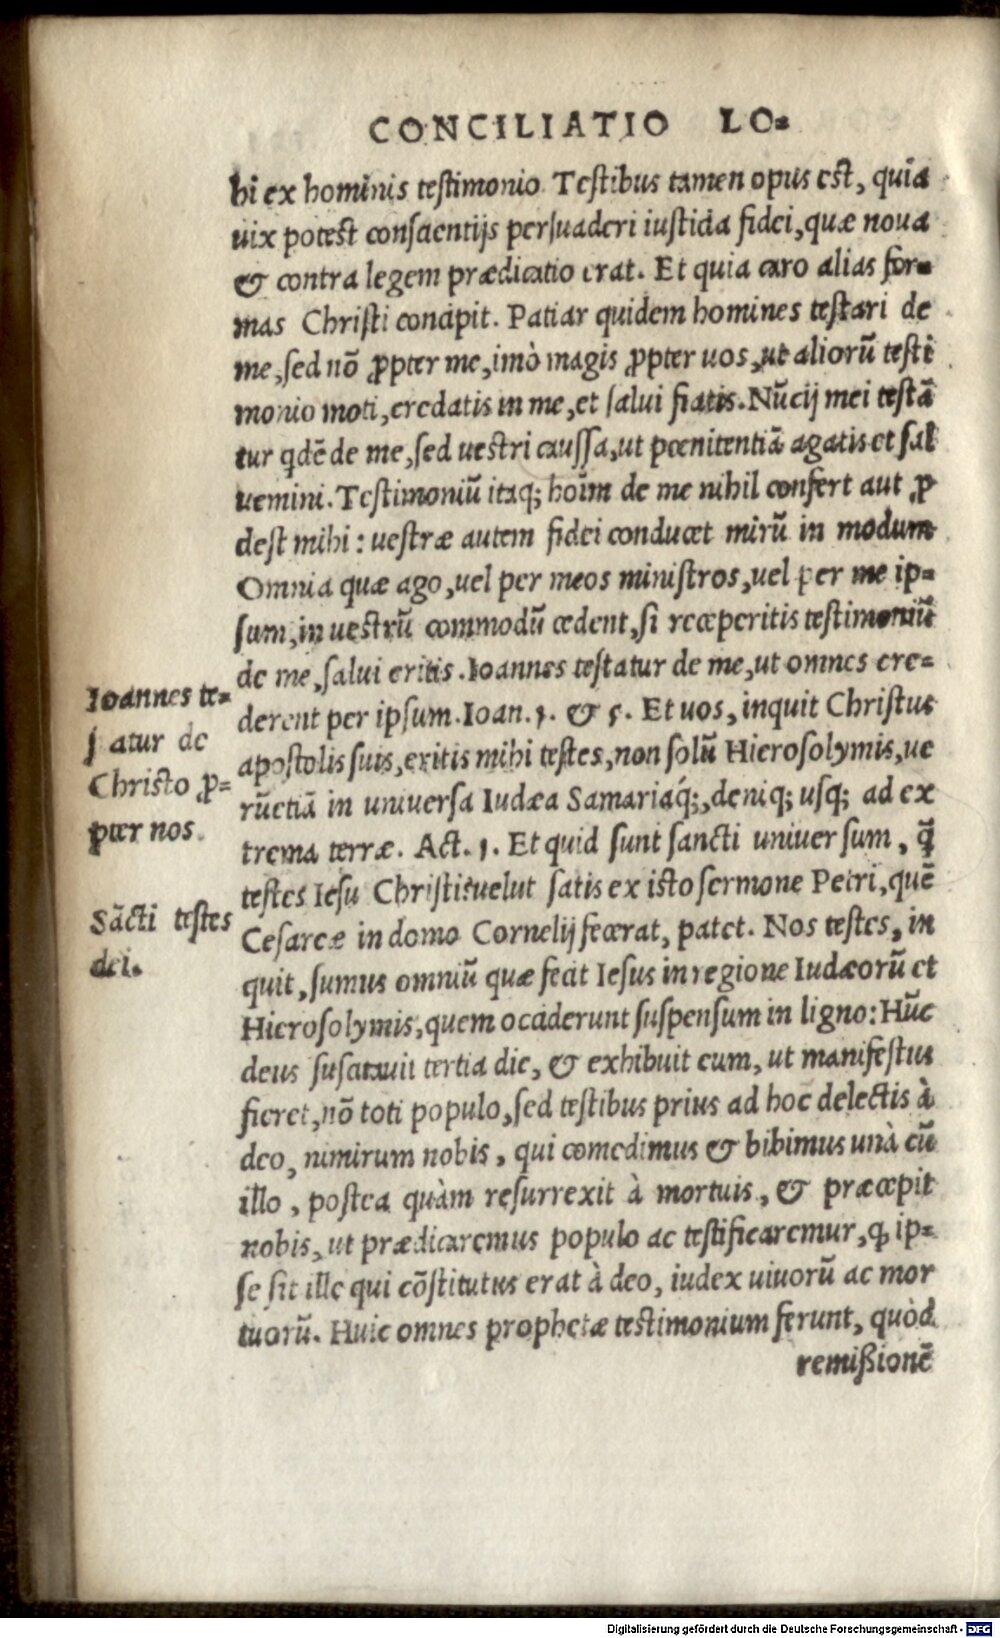 CONCILIATIO LO=
bi ex hominis testimonio. Testibus tamen opus est, quia
uix potest conscientijs persuaderi iusticia fidei, quæ noua
& contra legem prædicatio erat. Et quia caro alias for=
mas Christi concipit. Patiar quidem homines testari de
me, sed nõ ꝓpter me, imò magis ꝓpter uos, ut aliorũ testi
monio moti, credatis in me, et salui fiatis. Nũcij mei testã
tur qdẽ de me, sed uestri caussa, ut pœnitentiã agatis et sal
uemini. Testimoniũ itaq; hoĩm de me nihil confert aut ꝓ
dest mihi: uestræ autem fidei conducet mirũ in modum
Omnia quæ ago, uel per meos ministros, uel per me ip=
sum, in uestrũ commodũ cedent, si receperitis testimoniũ
de me, salui eritis. Ioannes testatur de me, ut omnes cre=
derent per ipsum. Ioan. 1. & 5. Et uos, inquit Christus
apostolis suis, eritis mihi testes, non solũ Hierosolymis, ue
rũetiã in uniuersa Iudæa Samariaq́;, deniq; usq; ad ex
trema terræ. Act. 1. Et quid sunt sancti uniuersum, q̃
testes Iesu Christi? uelut satis ex isto sermone Petri, quẽ
Cesareæ in domo Cornelij fecerat, patet. Nos testes, in
quit, sumus omniũ quæ fecit Iesus in regione Iudæorũ et
Hierosolymis, quem occiderunt suspensum in ligno: Hũc
deus suscitauit tertia die, & exhibuit eum, ut manifestus
fieret, nõ toti populo, sed testibus prius ad hoc delectis à
deo, nimirum nobis, qui comedimus & bibimus unà cũ
illo, postea quàm resurrexit à mortuis, & præcepit
nobis, ut prædicaremus populo ac testificaremur, ꝙ ip=
se sit ille qui cõstitutus erat à deo, iudex uiuorũ ac mor
tuorũ. Huic omnes prophetæ testimonium ferunt, quòd
remißionẽ
Ioannes te=
statur de
Christo ꝓ=
pter nos.
Sãcti testes
dei.
Digitalisierung gefördert durch die Deutsche Forschungsgemeinschaft - DFG